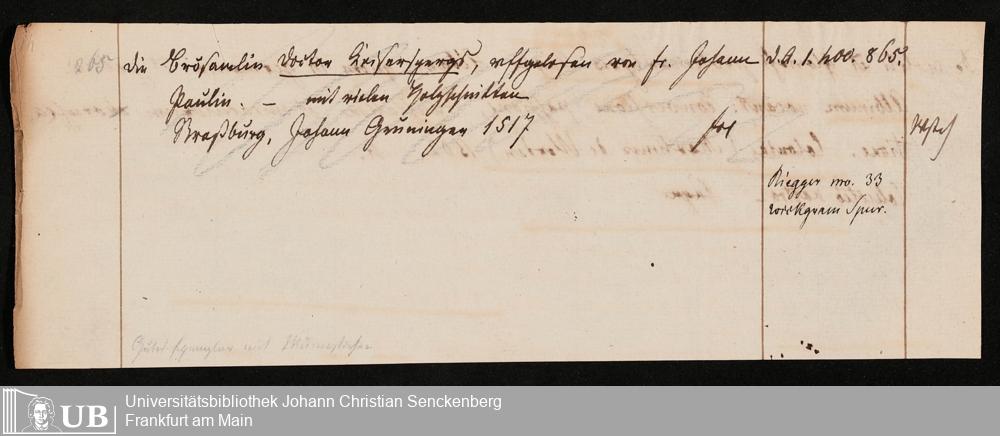 865
die Brösamlin Doctor Keiserspergs, uffgelesen von Fr. Johann
Paulin. – mit vielen Holzschnitten
Straßburg, Johann Gruninger 1517. fol
d.A. 1. 865.
Riegger no. 33
Gutes Exemplar mit
Universitätsbibliothek Johann Christian Senckenberg
Frankfurt am Main
UB